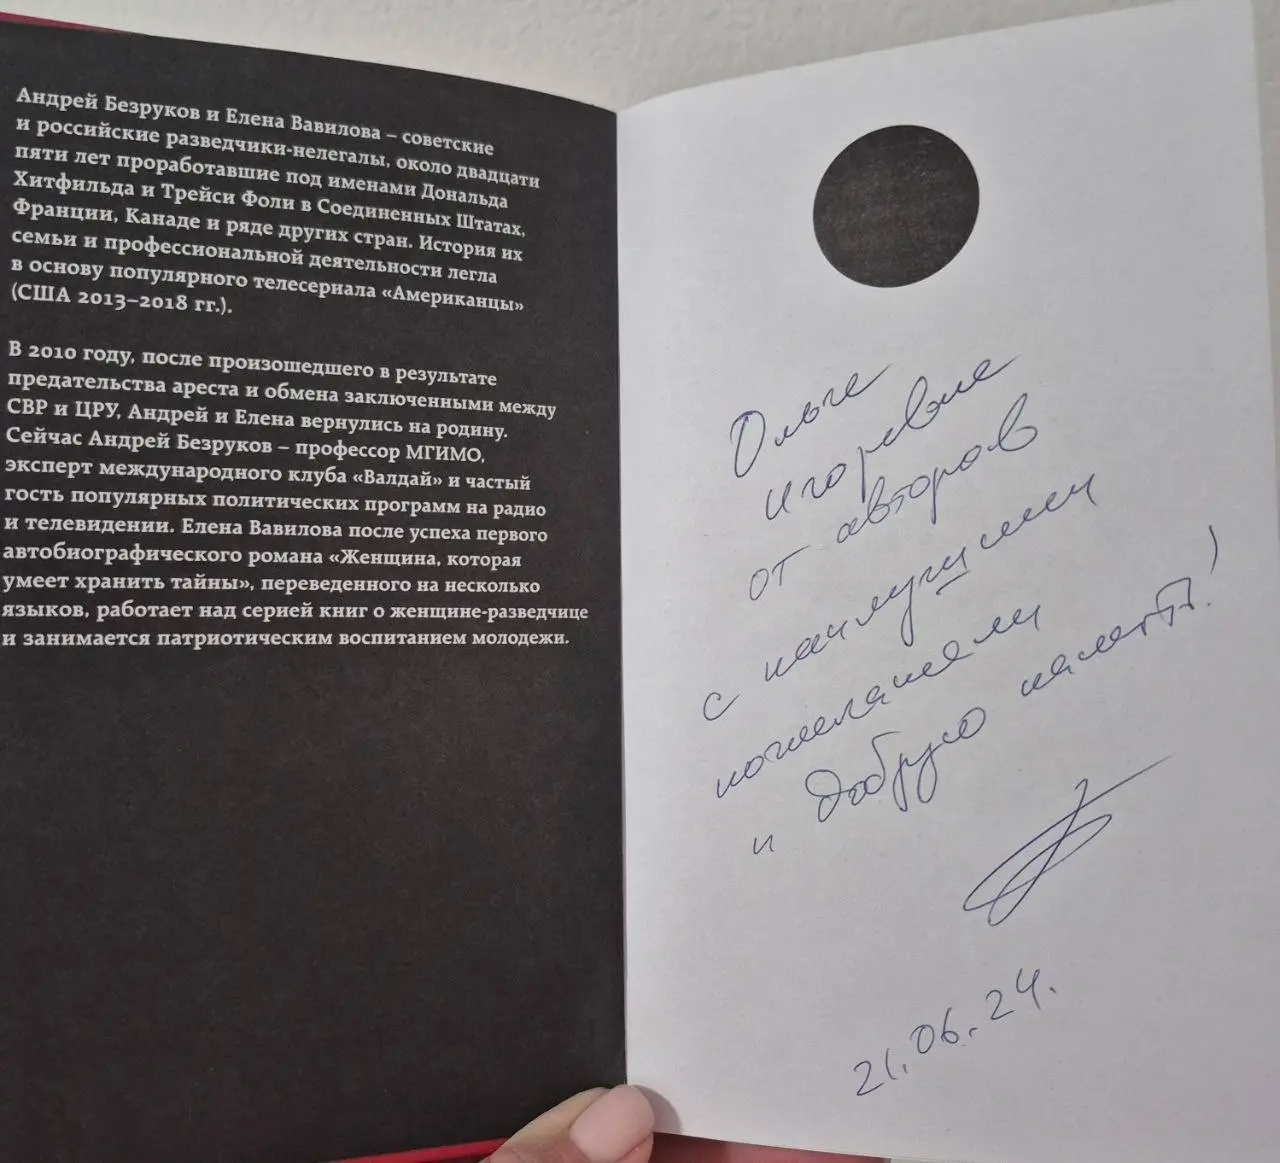 Андрей Безруков и Елена Вавилова – советские
и российские разведчики-нелегалы, около двадцати
пяти лет проработавшие под именами Дональда
Хитфильда и Трейси Фоли в Соединенных Штатах,
Франции, Канаде и ряде других стран. История их
семьи и профессиональной деятельности легла
в основу популярного телесериала «Американцы»
(США 2013–2018 гг.).
В 2010 году, после произошедшего в результате
предательства ареста и обмена заключенными между
СВР и ЦРУ, Андрей и Елена вернулись на родину.
Сейчас Андрей Безруков – профессор МГИМО,
эксперт международного клуба «Валдай» и частый
гость популярных политических программ на радио
и телевидении. Елена Вавилова после успеха первого
автобиографического романа «Женщина, которая
умеет хранить тайны», переведенного на несколько
языков, работает над серией книг о женщине-разведчице
и занимается патриотическим воспитанием молодежи.
Ольге
Игоревне
от авторов
с наилучшими
пожеланиями
и добрую память!
21.06.24.